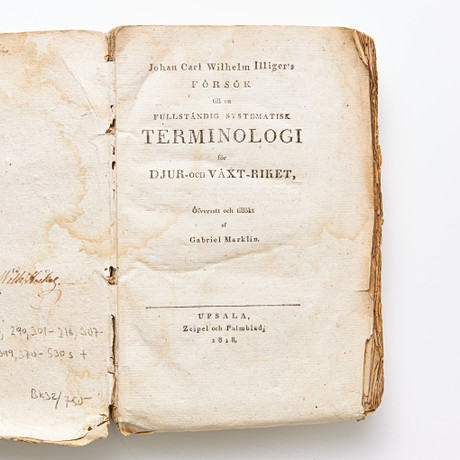 290,301-316,307-
399,370-530s +
BK32/750-
Johan Carl Wilhelm Illiger's
FÖRSÖK
till en
FULLSTÄNDIG SYSTEMATISK
TERMINOLOGI
för
DJUR-och VÄXT-RIKET,
Öfversatt och tillökt
af
Gabriel Marklin.
UPSALA,
Zeipel och Palmblad,
1818.